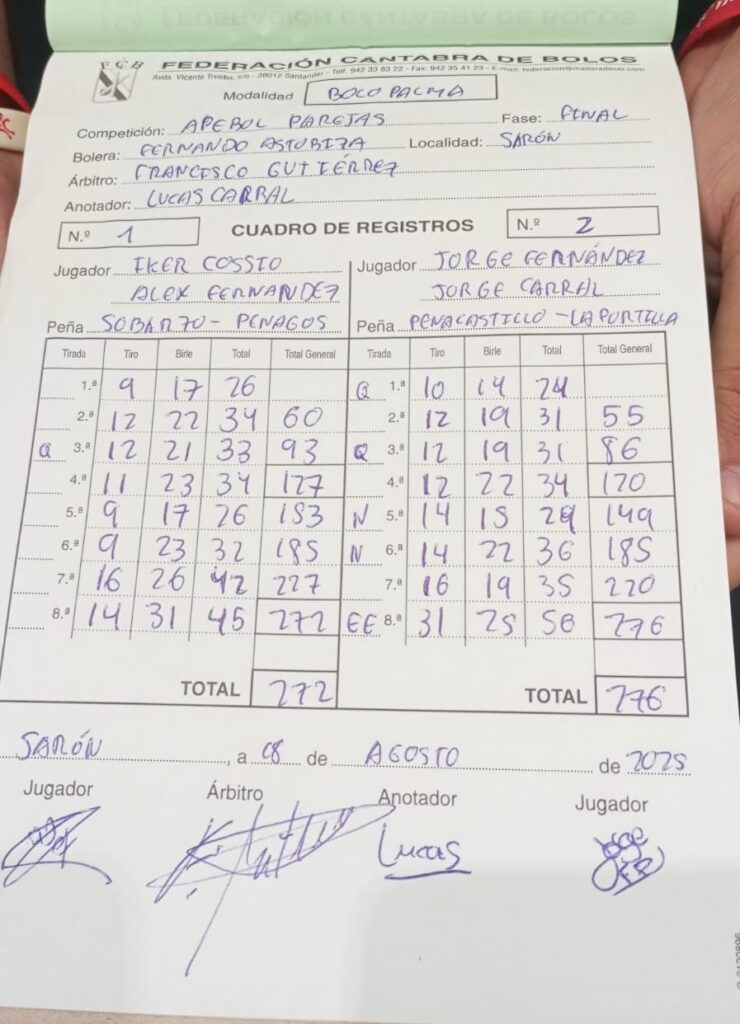 FCB FEDERACIÓN CANTABRA DE BOLOS
Avda. Vicente Trueba, s/n - 39012 Santander - Telf. 942 33 83 22 - Fax: 942 35 41 23 - E-mail: federacion@maderadeser.com
Modalidad BOLO PALMA
Competición: APEBOL PAREJAS Fase: FINAL
Bolera: FERNANDO ASTOBIZA Localidad: SARÓN
Árbitro: FRANCISCO GUTIÉRREZ
Anotador: LUCAS CARRAL
N.º 1 CUADRO DE REGISTROS N.º 2
Jugador IKER COSSIO Jugador JORGE FERNÁNDEZ
ALEX FERNANDEZ JORGE CARRAL
Peña SOBARZO-PENAGOS Peña PEÑACASTILLO-LA PORTILLA
Tirada Tiro Birle Total Total General Tirada Tiro Birle Total Total General
1.ª 9 17 26 Q 1.ª 10 14 24
2.ª 12 22 34 60 2.ª 12 19 31 55
Q 3.ª 12 21 33 93 Q 3.ª 12 19 31 86
4.ª 11 23 34 127 4.ª 12 22 34 120
5.ª 9 17 26 153 N 5.ª 14 15 29 149
6.ª 9 23 32 185 N 6.ª 14 22 36 185
7.ª 16 26 42 227 7.ª 16 19 35 220
8.ª 14 31 45 272 EE 8.ª 31 25 56 276
TOTAL 272 TOTAL 276
SARÓN, a 08 de AGOSTO de 2025
Jugador Árbitro Anotador Jugador
Lucas Jorge